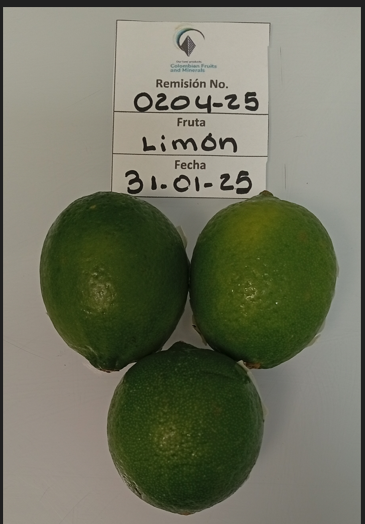 Colombian Fruits
and Minerals
Remisión No.
0204-25
Fruta
Limón
Fecha
31-01-25